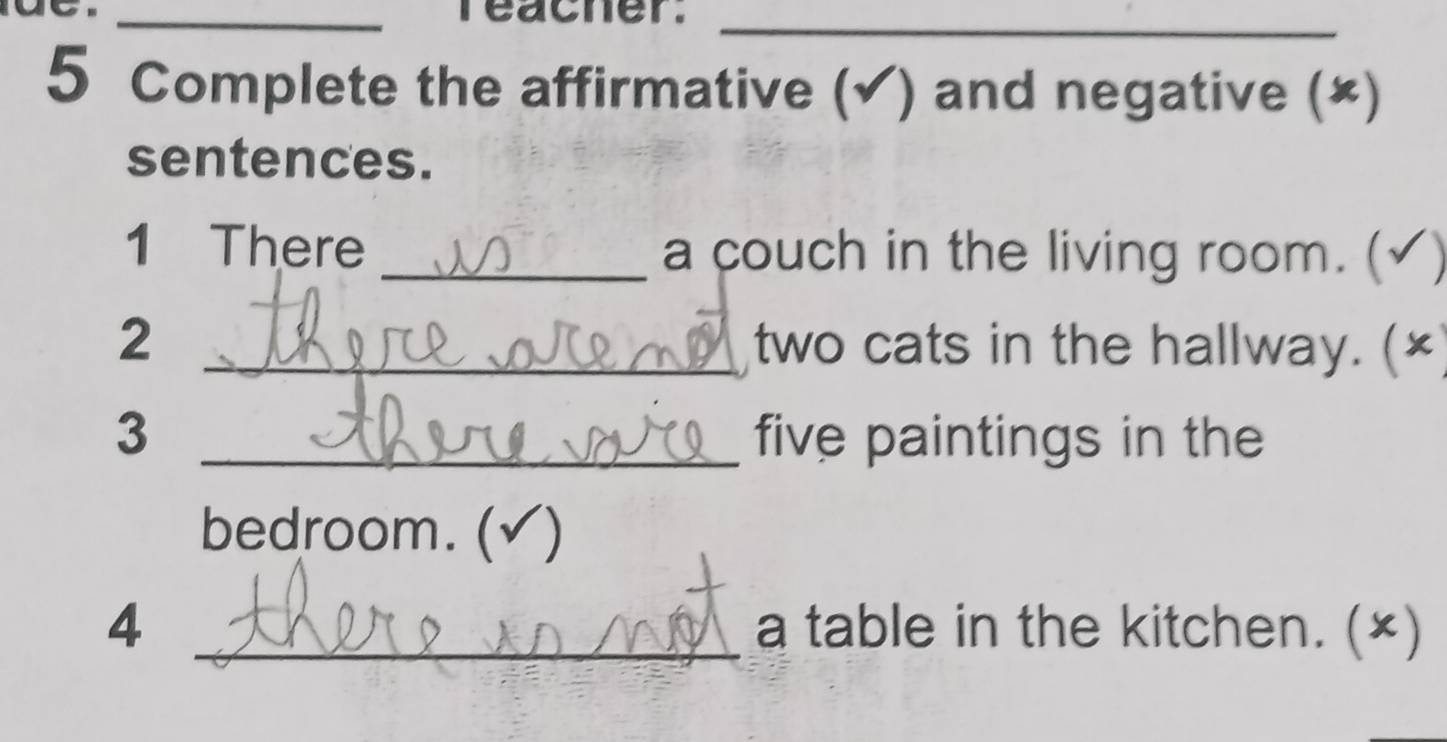 Teacher:
5 Complete the affirmative (✓) and negative (×)
sentences.
1 There is a couch in the living room. (✓)
2 there are not two cats in the hallway. (×)
3 there are five paintings in the
bedroom. (✓)
4 there is not a table in the kitchen. (×)